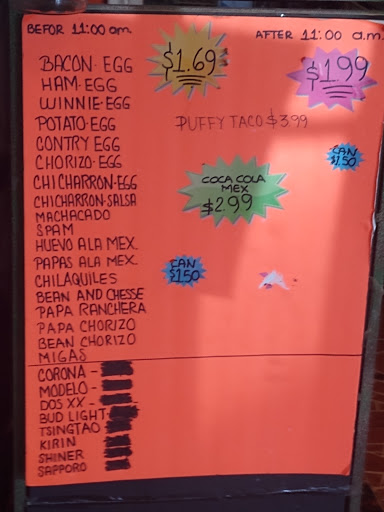 BEFOR 11:00 am
AFTER 11:00 a.m.
$1.69
$1.99
BACON-EGG
HAM-EGG
WINNIE-EGG
POTATO-EGG
PUFFY TACO $3.99
CONTRY EGG
CHORIZO-EGG
CAN
$1.50
CHICHARRON-EGG
CHICHARRON-SALSA
COCA COLA
MEX
$2.99
MACHACADO
SPAM
HUEVO ALA MEX.
PAPAS ALA MEX.
CHILAQUILES
CAN
$1.50
BEAN AND CHESSE
PAPA RANCHERA
PAPA CHORIZO
BEAN CHORIZO
MIGAS
CORONA -
MODELO -
DOS XX -
BUD LIGHT-
TSINGTAO
KIRIN
SHINER
SAPPORO